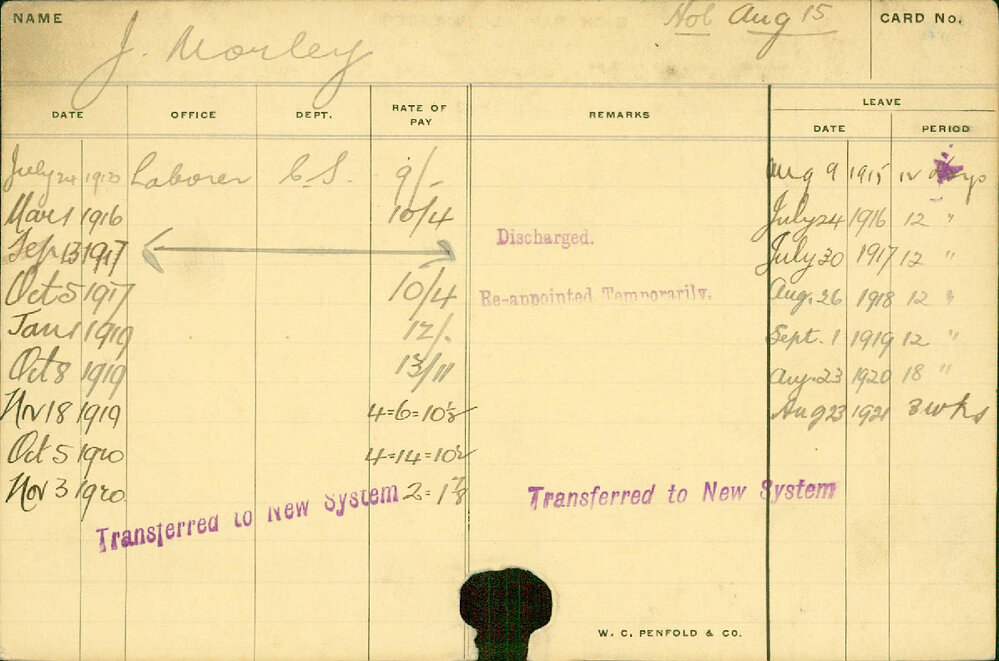 NAME J. Morley Hol Aug 15 CARD No.
DATE OFFICE DEPT. RATE OF PAY REMARKS LEAVE
DATE PERIOD
July 24 Laborer 9/- Aug 9 1915 days
Mar 1 1916 10/4 July 24 1916 12 "
Sep 13 1917 Discharged. July 30 1917 12 "
Oct 5 1917 10/4 Re-appointed Temporarily. Aug. 26 1918 12 "
Jan 1 1919 12/. Sept. 1 1919 12 "
Oct 8 1919 13/11 Aug. 23 1920 18 "
Nov 18 1919 4=6=10½ Aug 23 1921 3 wks
Oct 5 1920 4=14=10½
Nov 3 1920 2=1⅞
Transferred to New System Transferred to New System
W. C. PENFOLD & CO.